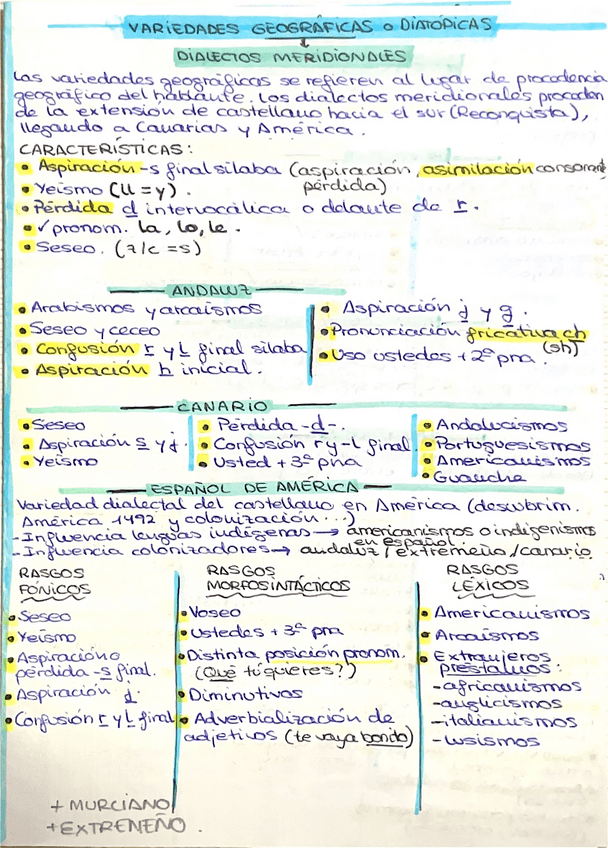 VARIEDADES GEOGRÁFICAS o DIATÓPICAS
DIALECTOS MERIDIONALES
Las variedades geográficas se refieren al lugar de procedencia
geográfico del hablante. Los dialectos meridionales proceden
de la extensión de castellano hacia el sur (Reconquista),
llegando a Canarias y América.
CARACTERÍSTICAS:
• Aspiración -s final sílaba (aspiración, asimilación consonant
pérdida)
• Yeísmo (ll = y).
• Pérdida d intervocálica o delante de r.
• ✓ pronom. la, lo, le.
• Seseo. (z/c = s)
ANDALUZ
• Arabismos y arcaísmos
• Seseo y ceceo
• Confusión r y l final sílaba
• Aspiración h inicial.
• Aspiración j y g.
• Pronunciación fricativa ch
(sh)
• Uso ustedes + 2ª pna.
CANARIO
• Seseo
• Aspiración s y j.
• Yeísmo
• Pérdida -d-.
• Confusión r y -l final.
• Usted + 3ª pna
• Andalucismos
• Portuguesismos
• Americanismos
• Guanche
ESPAÑOL DE AMÉRICA
Variedad dialectal del castellano en América (descubrim.
América 1492 y colonización...)
- Influencia lenguas indígenas → americanismos o indigenismos
en español.
- Influencia colonizadores → andaluz / extremeño / canario
RASGOS
FÓNICOS
• Seseo
• Yeísmo
• Aspiración o
pérdida -s final.
• Aspiración j
• Confusión r y l final
RASGOS
MORFOSINTÁCTICOS
• Voseo
• Ustedes + 3ª pna
• Distinta posición pronom.
(Qué tú quieres?)
• Diminutivos
• Adverbialización de
adjetivos (te vaya bonito)
RASGOS
LÉXICOS
• Americanismos
• Arcaísmos
• Extranjeros
préstamos:
- africanismos
- anglicismos
- italianismos
- lusismos
+ MURCIANO
+ EXTREMEÑO.